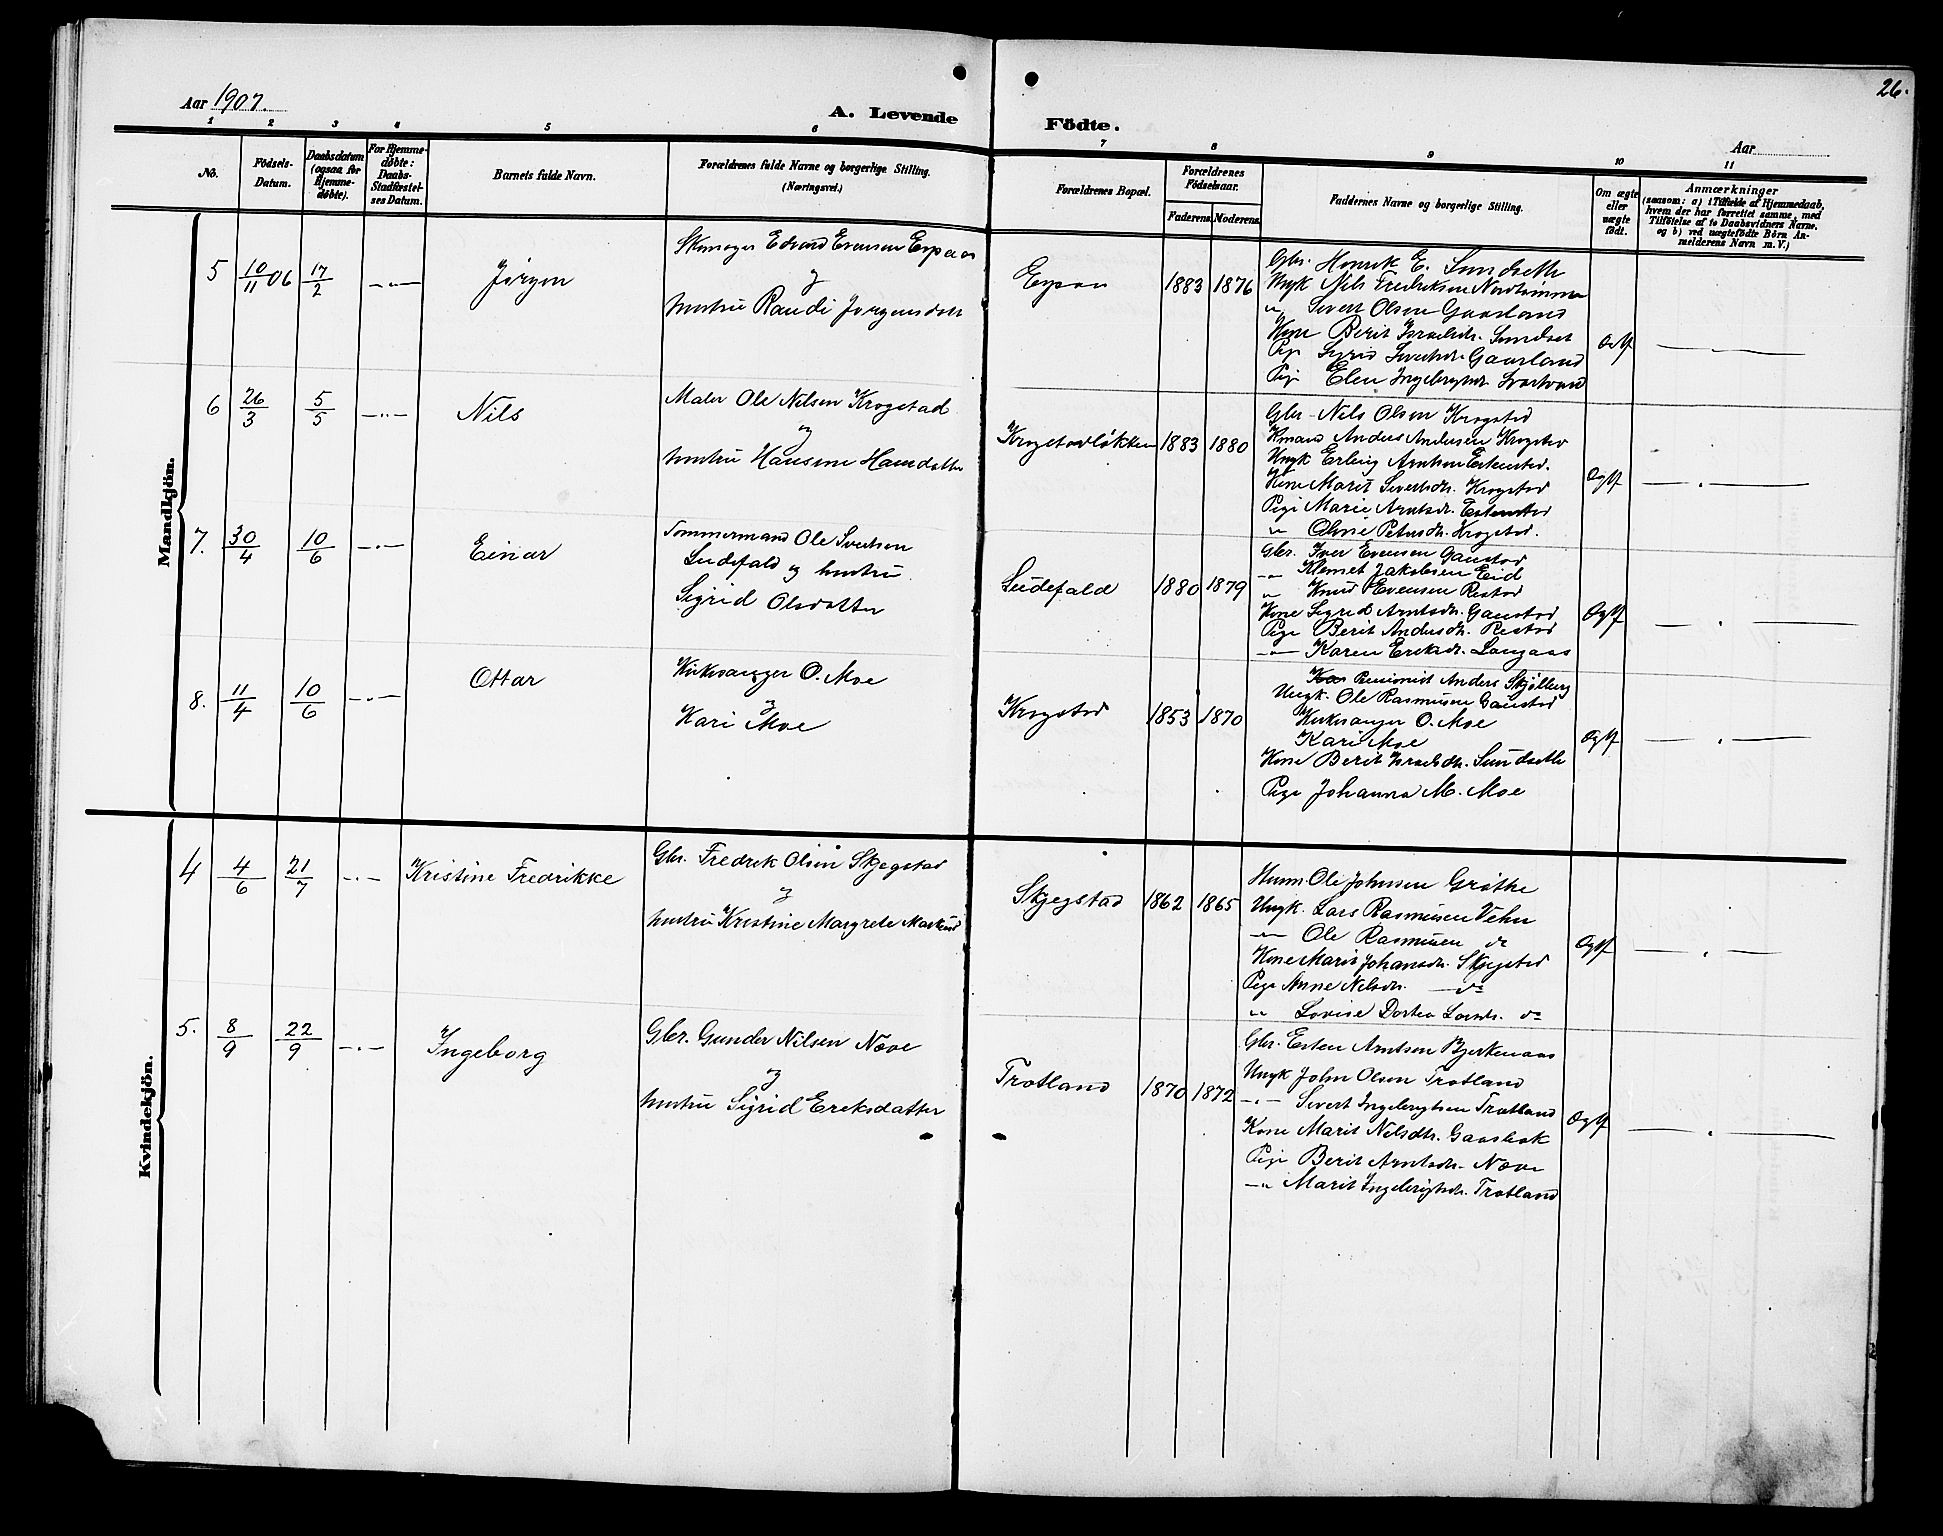 26.
Aar 1907.
A. Levende Födte.
Aar
1 2 3 4 5 6 7 8 9 10 11
No.
Födsels-Datum.
Daabsdatum (ogsaa for Hjemmedøbte).
For Hjemmedøbte: Daabs-Stadfæstelses Datum.
Barnets fulde Navn.
Forældrenes fulde Navne og borgerlige Stilling.
(Næringsvei.)
Forældrenes Bopæl.
Forældrenes Födselsaar.
Faderens. Moderens.
Faddernes Navne og borgerlige Stilling.
Om ægte eller uægte födt.
Anmærkninger
(saasom: a) i Tilfælde af Hjemmedaab,
hvem der har forrettet samme, med
Tilföielse af to Daabsvidners Navne,
og b) ved uægtefödte Börn An-
melderens Navn m. V.)
Mandkjön.
5 10/11 06 17/2 -"- Jörgen
Skomager Edvard Evensen Espaas
og
hustru Randi Jörgensdatr
Espaas 1883 1876
Gbr. Henrik E. Sundseth
Ungk Nils Fredriksen Nordtömme
" Sivert Olsen Gaasland
Kone Berit Israelsdr. Sundset
Pige Sigrid Sivertsdr. Gaasland
Pige Elen Ingebrigtsdr. Svartvand
Ægte
6 26/3 5/5 -"- Nils
Maler Ole Nilsen Krogstad
og
hustru Hansine Hansdatter
Krogstadlökken 1883 1880
Gbr. Nils Olsen Krogstad
Kmand Anders Andersen Krogstad
Ungk Erling Arntsen Estenstad.
Kone Marit Sivertsdr. Krogstad
Pige Marie Arntsdr. Estenstad
" Oline Petersdr. Krogstad.
Ægte
7. 30/4 10/6 -"- Einar
Tömmermand Ole Sivertsen
Ludefald og hustru
Sigrid Olsdatter
Ludefald 1880 1879
Gbr. Iver Evensen Gaustad
-"- Klemet Jakobsen Eid
" Knud Evensen Restad
Kone Sigrid Arntsdr. Gaustad
Pige Berit Andersdr. Restad
-"- Karen Eriksdr. Langaas
Ægte
8. 11/4 10/6 -"- Ottar
Kirkesanger O. Moe
og
Kari Moe
Krogstad 1853 1870
Pensionist Anders Skjölberg
Ungk. Ole Rasmusen Gaustad
Kirkesanger O. Moe
Kari Moe
Kone Berit Israelsdr. Sundseth
Pige Johanna M. Moe
Ægte
Kvindekjön.
4 4/6 21/7 -"- Kristine Fredrikke
Gbr. Fredrik Olsen Skjegstad
og
hustru Kristine Margrete
Skjegstad 1862 1865
Husm. Ole Johnsen Gröthe
Ungk. Lars Rasmusen Vehn
-"- Ole Rasmusen do
Kone Marit Johansdr. Skjegstad
Pige Anne Nilsdr. do
" Lovise Dortea Larsdr. do
Ægte
5. 8/9 22/9 -"- Ingeborg
Gbr. Gunder Nilsen Næve
og
hustru Sigrid Eriksdatter
Trotland 1870 1872
Gbr. Esten Arntsen Bjerkenaas
Ungk John Olsen Trotland
-"- Sivert Ingebrigtsen Trotland
Kone Marit Nilsdtr. Gaasbak
Pige Berit Arntsdr. Næve
-"- Marit Ingebrigtsdr. Trotland
Ægte